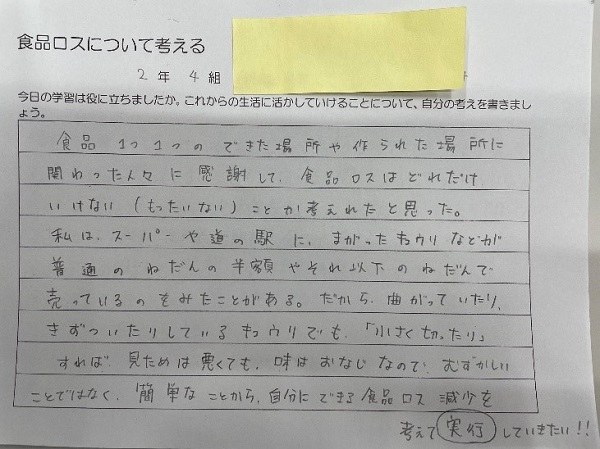 食品ロスについて考える
2年 4組
今日の学習は役に立ちましたか。これからの生活に活かしていけることについて、自分の考えを書きまし
ょう。
食品 1つ1つの できた場所や作られた場所に
関わった人々に 感謝して、食品ロスはどれだけ
いけない(もったいない)ことか考えれたと思った。
私は、スーパーや道の駅に、まがったキュウリなどが
普通の ねだんの半額やそれ以下のねだんで
売っているのをみたことがある。だから、曲がっていたり、
きずついたりしているキュウリでも、「小さく切ったり」
すれば、見ためは悪くても、味はおなじなので、むずかしい
ことではなく、簡単なことから、自分にできる食品ロス減少を
考えて実行していきたい!!